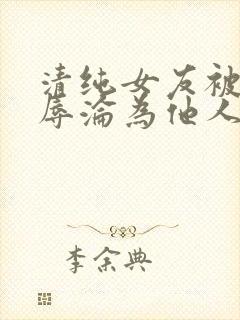 清纯女友被
辱淪為他人
李余典